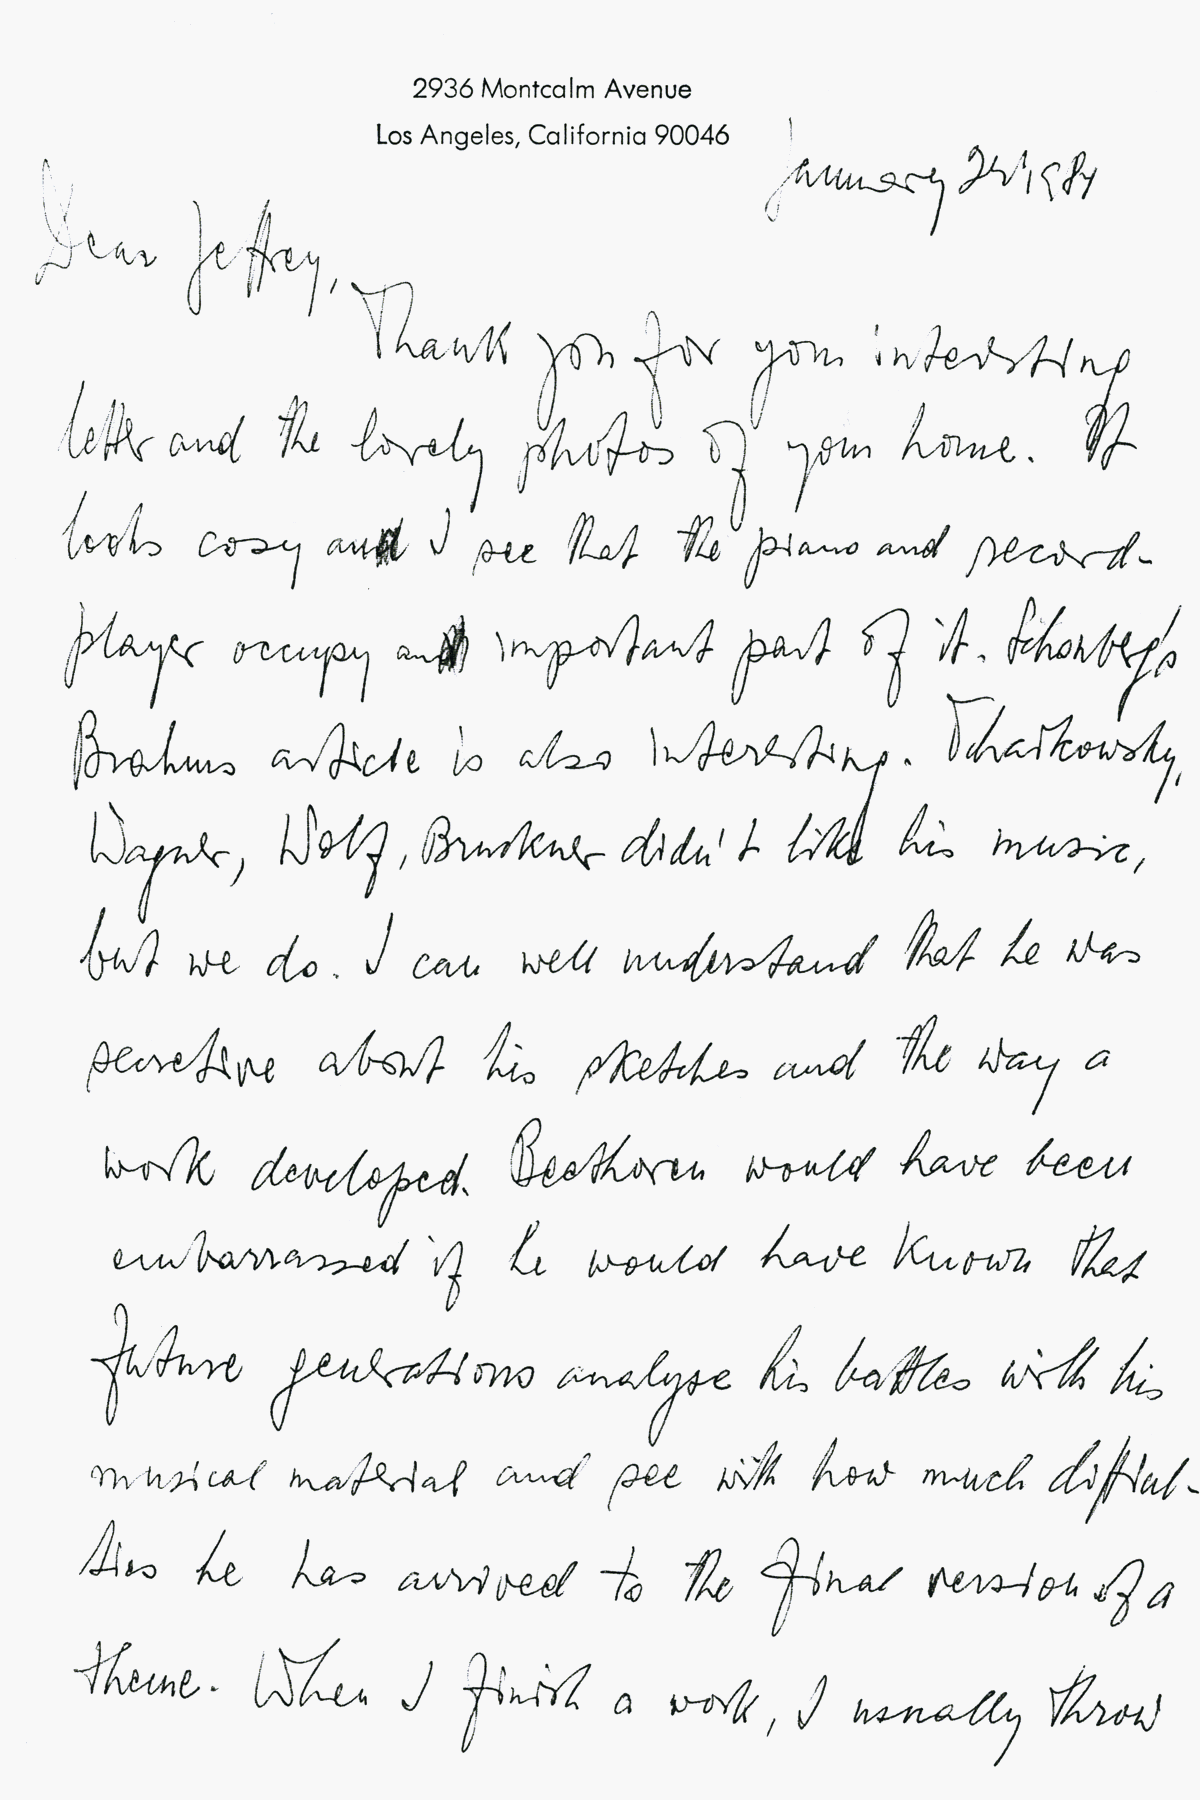 2936 Montcalm Avenue
Los Angeles, California 90046
January 1984
Dear Jeffrey,
Thank you for your interesting
letter and the lovely photos of your home. It
looks cosy and I see that the piano and record-
player occupy an important part of it. Schönberg's
Brahms article is also interesting. Tchaikowsky,
Wagner, Wolf, Bruckner didn't like his music,
but we do. I can well understand that he was
secretive about his sketches and the way a
work developed. Beethoven would have been
embarrassed if he would have known that
future generations analyse his battles with his
musical material and see with how much difficul-
ties he has arrived to the final version of a
theme. When I finish a work, I usually throw